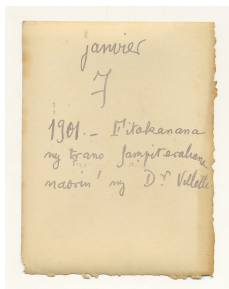 janvier
7
1901. - Fitokanana
ny trano fampiterahana
naorin' ny Dr Villette